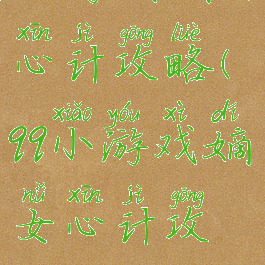 xīn jì gōng lüè
心计攻略(
xiǎo yóu xì dí
99小游戏嫡
nǚ xīn jì gōng
女心计攻